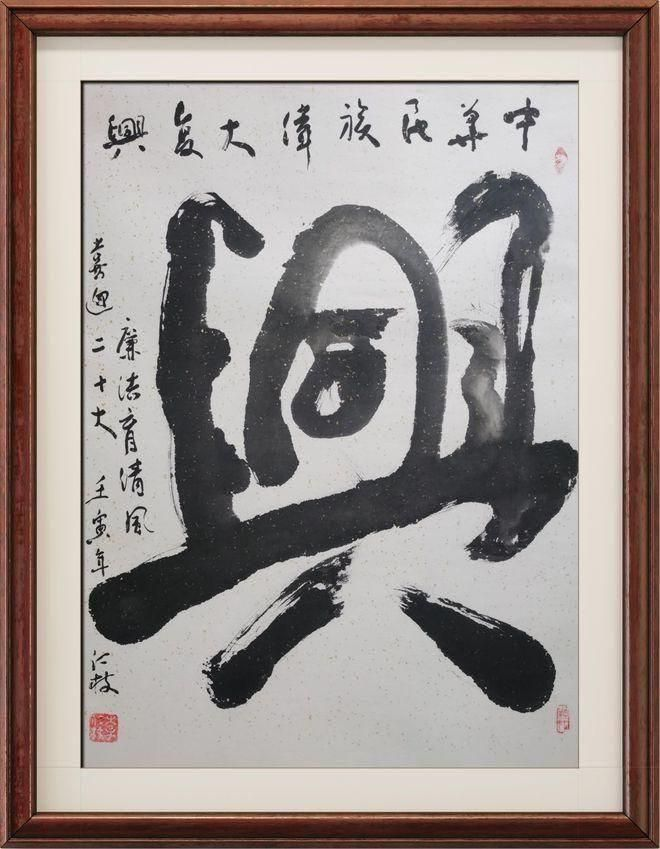 中华民族偉大复興
興
廉洁育清風
喜迎二十大 壬寅年 仁枝